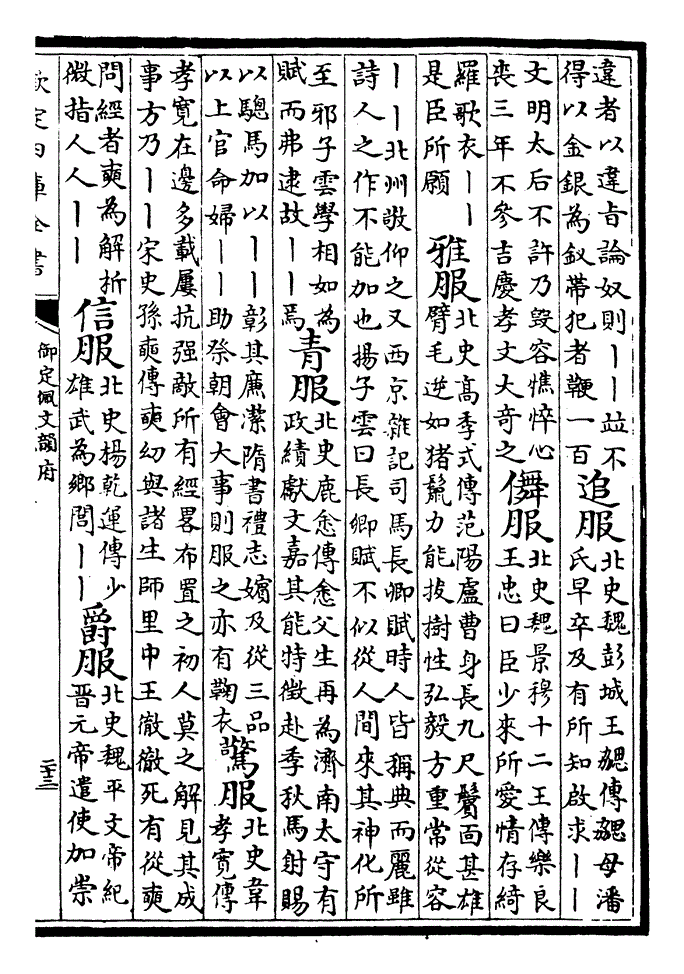 違者以違旨論奴則丨丨並不
得以金銀為釵帶犯者鞭一百
追服
北史魏彭城王勰傳勰母潘
氏早卒及有所知啟求丨丨
文明太后不許乃毀容憔悴心
喪三年不參吉慶孝文大奇之
儛服
北史魏景穆十二王傳樂良
王忠曰臣少來所愛情存綺
羅歌衣丨丨
是臣所願
雅服
北史高季式傳范陽盧曹身長九尺鬢面甚雄
臂毛逆如猪鬣力能拔樹性弘毅方重常從容
丨丨北州敬仰之又西京雜記司馬長卿賦時人皆稱典而麗雖
詩人之作不能加也揚子雲曰長卿賦不似從人間來其神化所
至邪子雲學相如為
賦而弗逮故丨丨焉
青服
北史鹿悆傳悆父生再為濟南太守有
政績獻文嘉其能特徵赴季秋馬射賜
以驄馬加以丨丨彰其廉潔隋書禮志嬪及從三品
以上官命婦丨丨助祭朝會大事則服之亦有鞠衣
驚服
北史韋
孝寛傳
孝寛在邊多載屢抗强敵所有經畧布置之初人莫之解見其成
事方乃丨丨宋史孫奭傳奭幼與諸生師里中王徹徹死有從奭
問經者奭為解析
微指人人丨丨
信服
北史楊乾運傳少
雄武為鄉閭丨丨
爵服
北史魏平文帝紀
晉元帝遣使加崇
欽定四庫全書
御定佩文韻府
二十三